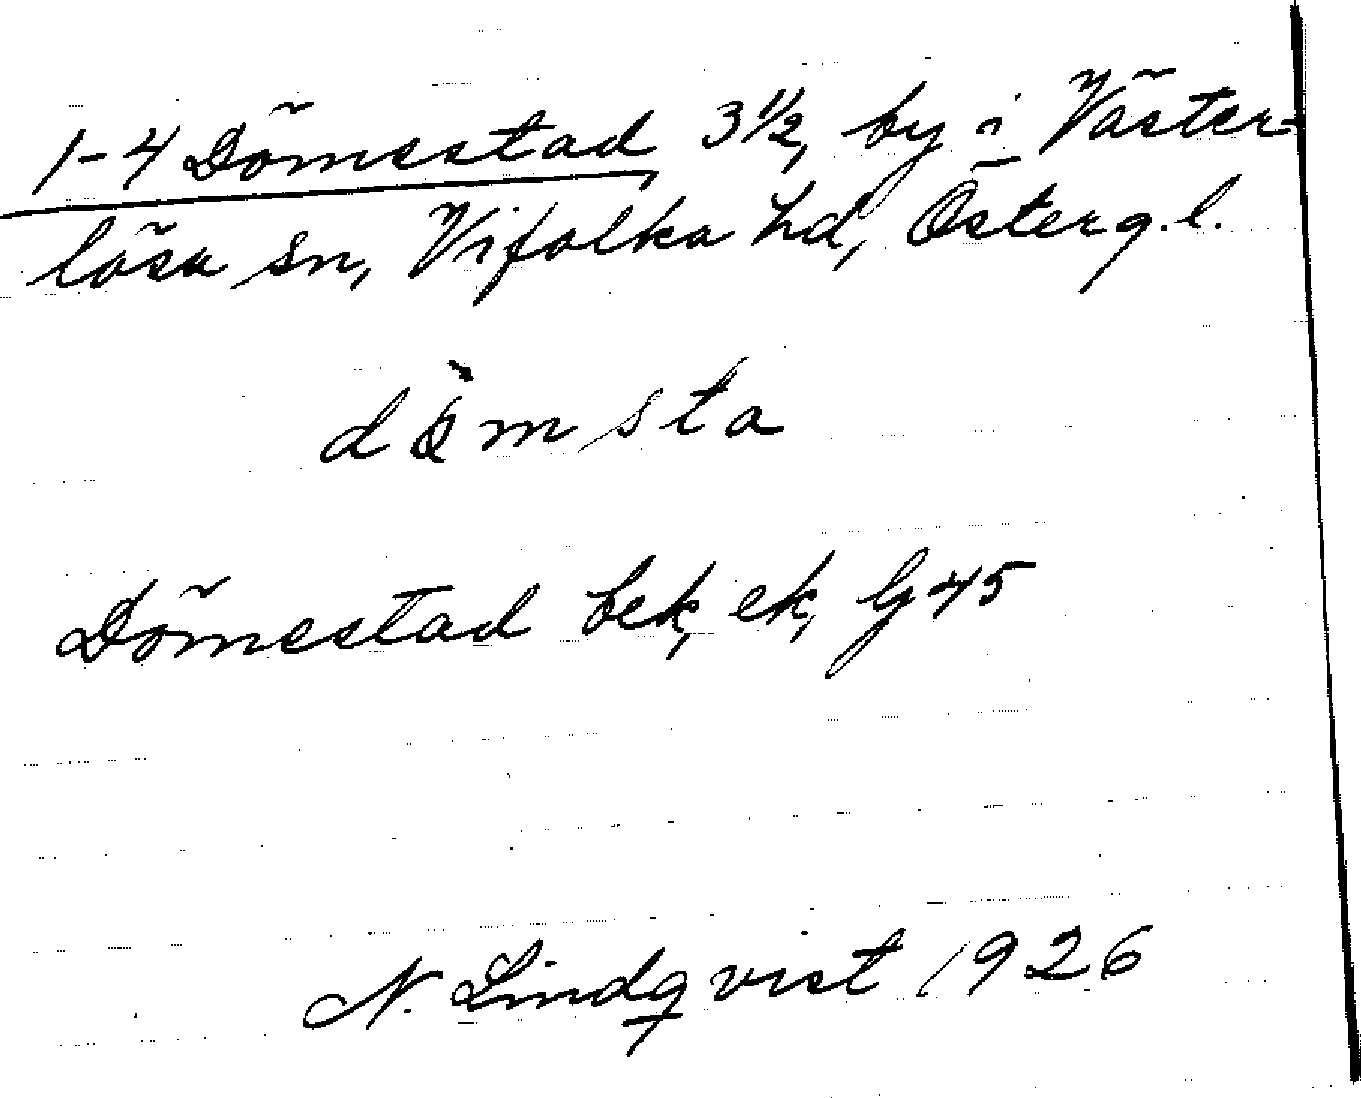 1-4 Dömestad 3 1/2, by i Väster-
lösa sn, Vifolka hd, Österg.l.
dö̀msta
Dömestad bek, ek, Gg 45
N. Lindqvist 1926